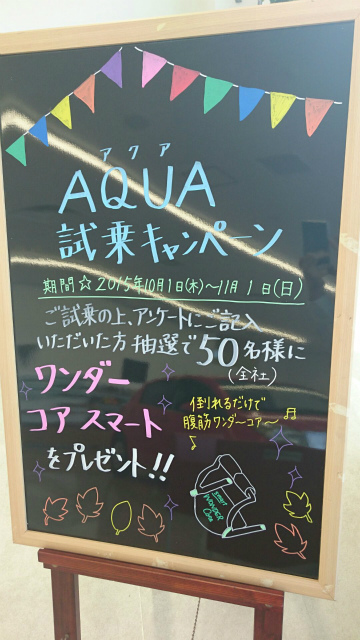 アクア
AQUA
試乗キャンペーン
期間☆2015年10月1日(木)〜11月1日(日)
ご試乗の上、アンケートにご記入
いただいた方抽選で50名様に
(全社)
ワンダー
コア スマート
をプレゼント!!
倒れるだけで
腹筋ワンダーコア〜♫
♪
SMART
WONDER
Core